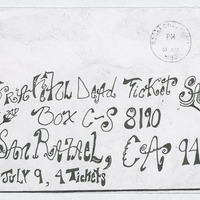 PM
Grateful Dead Ticket Sa
Box C-S 8190
San Rafael, CA 94
July 9, 4 Tickets